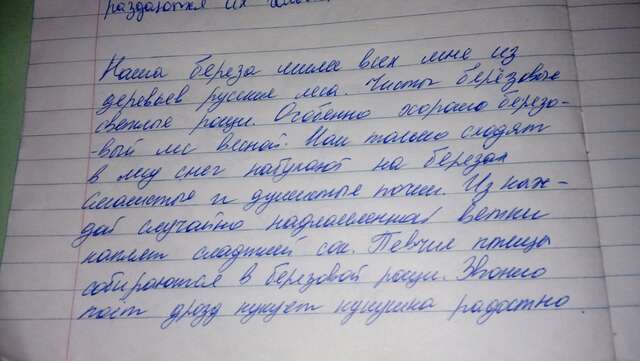 раздаются их
Наша береза милее всех мне из
деревьев русские леса. Чисты берёзовые
светлые рощи. Особенно хорошо березо-
-вый лес весной. Как только сходят
в лесу снег набухают на березах
смолистые и душистые почки. Из каж-
дой случайно надломленной ветки
каплет сладкий сок. Певчие птицы
собираются в березовой рощи. Звонко
поёт дрозд кукует кукушка радостно